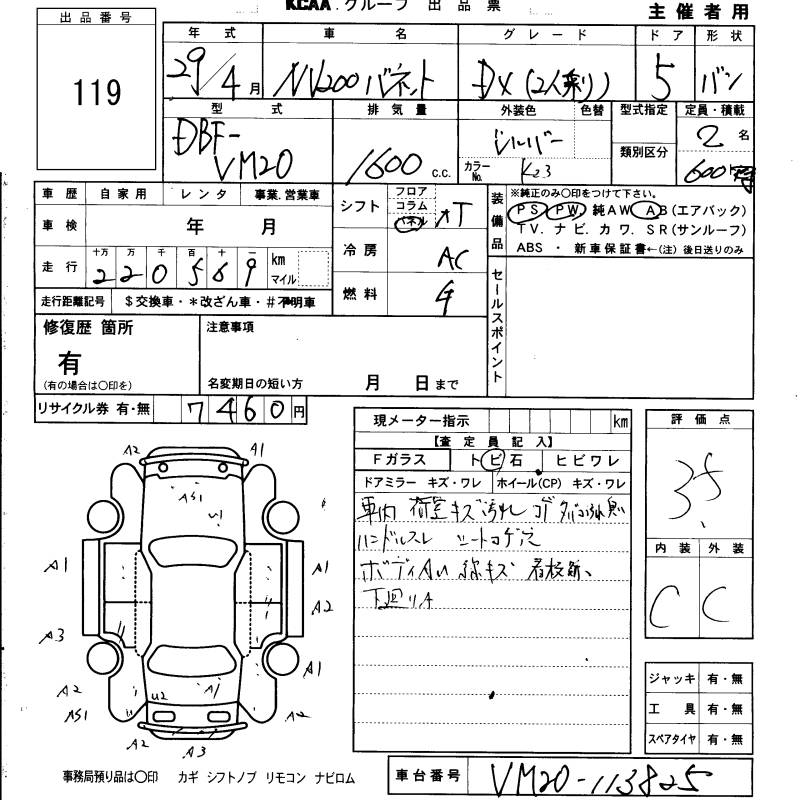 KCAA.グループ 出品票
主催者用
出品番号
119
年式 車名 グレード ドア 形状
29/4月 NV200 バネット DX (2人乗り) 5 バン
型式 排気量 外装色 色替 型式指定 定員・積載
DBF-VM20 1600 c.c. シルバー 2名
カラーNo. K23 類別区分 600
車歴 自家用 レンタ 事業.営業車
車検 年 月
走行 十万 万 千 百 十 一 km マイル
2 2 0 5 6 9
走行距離記号 $交換車・*改ざん車・#不明車
シフト フロア コラム パネル AT
冷房 AC
燃料
装備品
※純正のみ〇印をつけて下さい。
PS PW 純AW AB(エアバック)
TV. ナビ. カワ. SR(サンルーフ)
ABS ・ 新車保証書←(注) 後日送りのみ
セールスポイント
修復歴 箇所
有
(有の場合は〇印を)
注意事項
名変期日の短い方 月 日まで
リサイクル券 有・無 7460円
現メーター指示 km
【査定員記入】
Fガラス トビ石 ヒビワレ
ドアミラー キズ・ワレ ホイール(CP) キズ・ワレ
車内 荷室キズ汚れ
ハンドルスレ シートコゲ穴
ボディAU 線キズ
下廻りA
評価点
3.5
内装 外装
C C
ジャッキ 有・無
工具 有・無
スペアタイヤ 有・無
A2 A1
AS1
U1
A1 A1
A2
A3
A1
A2 U2 A1
AS1 A2
A2 A3
事務局預り品は〇印 カギ シフトノブ リモコン ナビロム
車台番号 VM20-113825